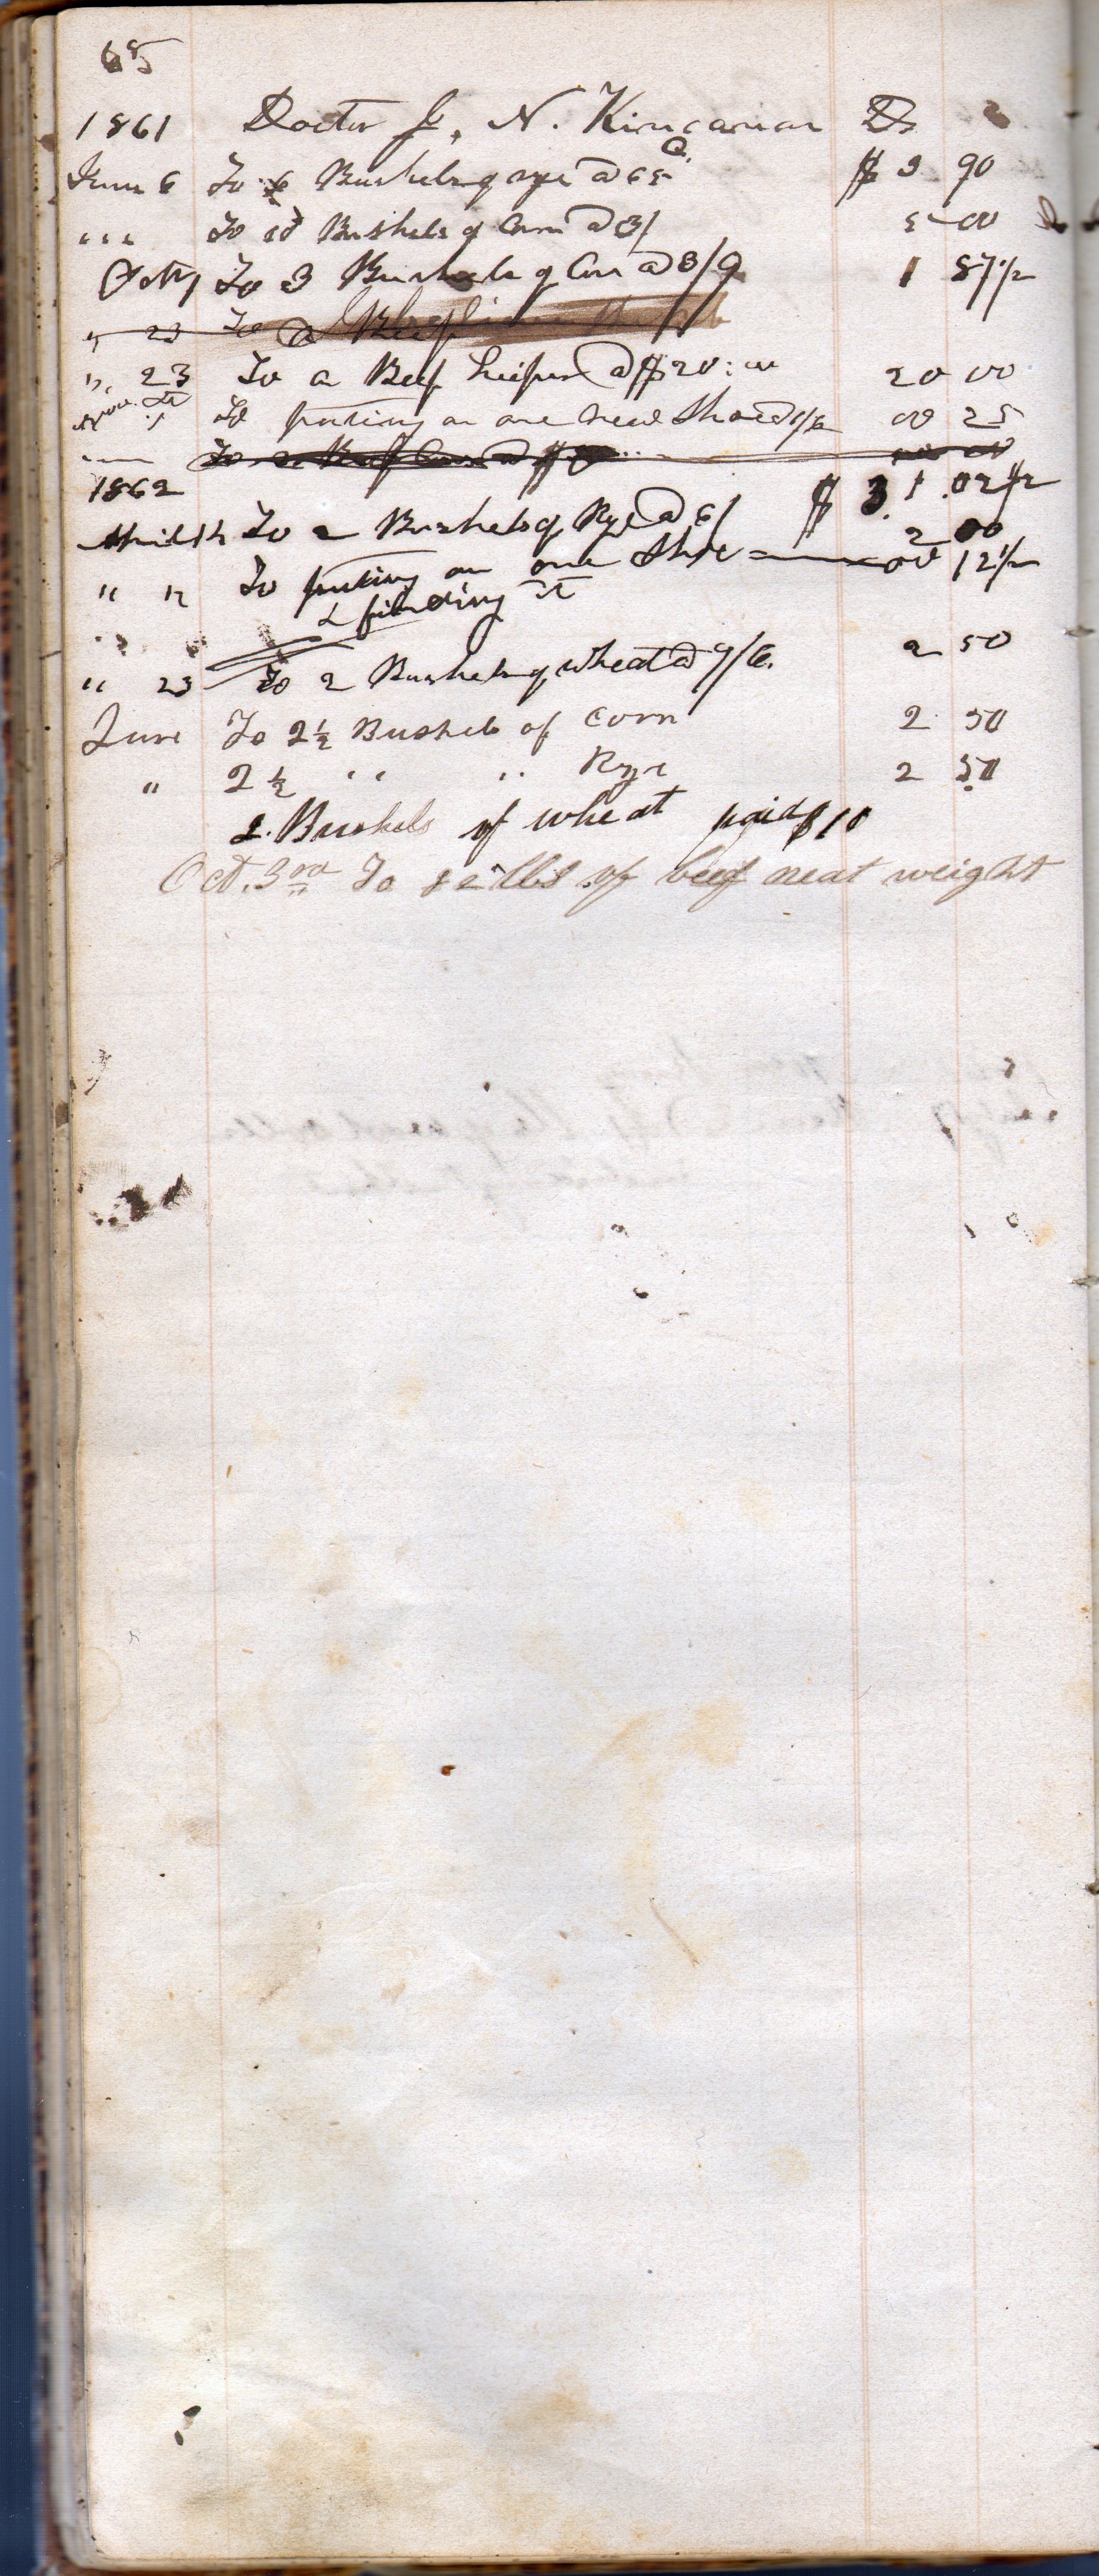 65
1861 Doctor J. N. Kincanon Dr
June 6 To 6 Bushels of rye @ 65 $ 3 90
" " " To 10 Bushels of Corn @ 3/ 5 00
Oct 1 To 3 Bushels of Corn @ 3/9 1 87 1/2
" 23 To a Beef
" 23 To a Beef heifer @ $20:00 20 00
To puting on one new Shoe @ 1/6 00 25
To a Beef
1862 $ 31.02 1/2
April 12 To 2 Bushels of Rye @ 6/ 2 00
" 12 To puting on one Shoe 00 12 1/2
& finding it
" 23 To 2 Bushels of wheat @ 7/6. 2 50
June To 2 1/2 Bushels of Corn 2 50
" 2 1/2 " " Rye 2 50
2 Bushels of wheat paid $10
Oct. 3rd To 82 lbs of beef neat weight